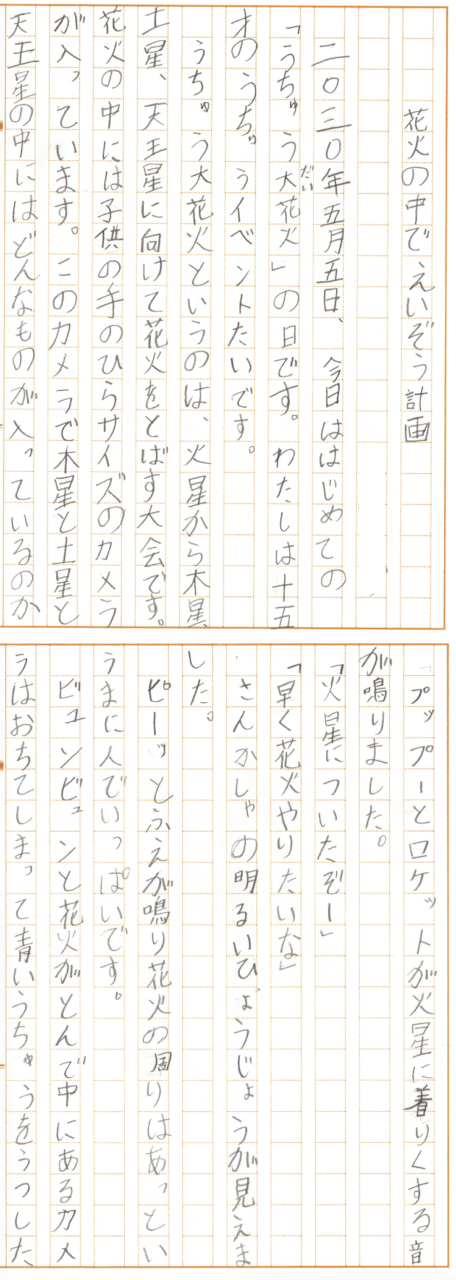 花火の中でえいぞう計画
二〇三〇年五月五日、今日ははじめての
「うちゅう大花火」の日です。わたしは十五
だい
才のうちゅうイベントたいです。
うちゅう大花火というのは、火星から木星、
土星、天王星に向けて花火をとばす大会です。
花火の中には子供の手のひらサイズのカメラ
が入っています。このカメラで木星と土星と
天王星の中にはどんなものが入っているのか
プップーとロケットが火星に着りくする音
が鳴りました。
「火星についたぞー」
「早く花火やりたいな」
さんかしゃの明るいひょうじょうが見えま
した。
ピーッとふえが鳴り花火の周りはあっとい
うまに人でいっぱいです。
ビュンビュンと花火がとんで中にあるカメ
ラはおちてしまって青いうちゅうをうつした